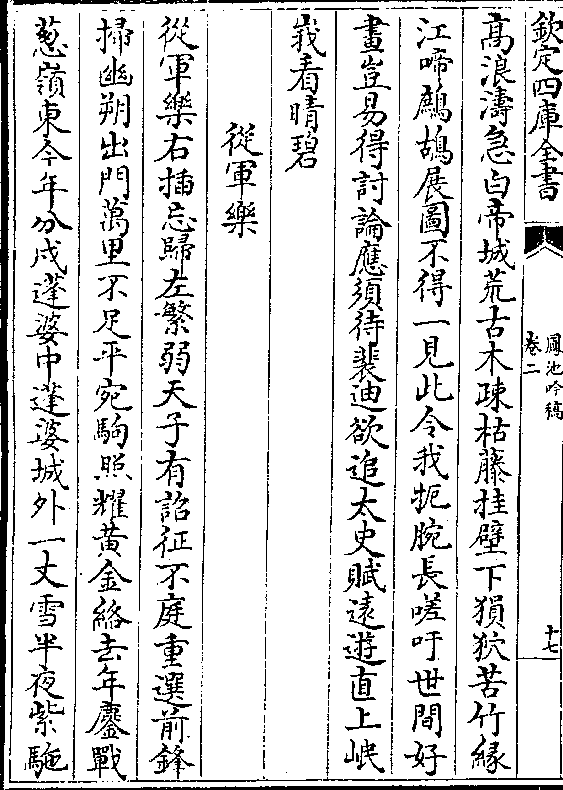 欽定四庫全書
鳳池吟稿
卷二
十七
高浪濤急白帝城荒古木疎枯藤挂壁下猨狖苦竹縁
江啼鷓鴣展圖不得一見此令我扼腕長嗟吁世間好
畫豈易得討論應須待裴迪欲追太史賦遠遊直上岷
峩看晴碧
從軍樂
從軍樂右插忘歸左繁弱天子有詔征不庭重選前鋒
掃幽朔出門萬里不足平宛駒照耀黃金絡去年鏖戰
葱嶺東今年分戍蓬婆中蓬婆城外一丈雪半夜紫駞